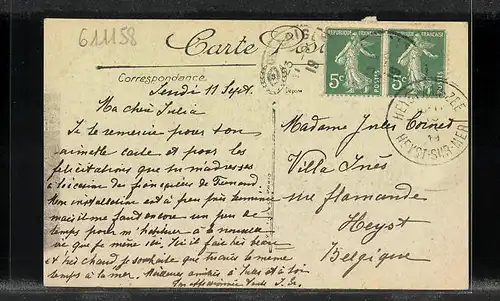 611158
Carte Postale
Correspondance
REPUBLIQUE FRANÇAISE
5c
POSTES
REPUBLIQUE FRANÇAISE
5c
POSTES
HEYST-SUR-MER
Lundi 11 Sept.
Ma chère Julia
Je te remercie pour ton
aimable carte et pour les
félicitations que tu m'adresses
à l'occasion des fiançailles de Fernand.
Mon installation est à peu près terminée
mais il me faut encore un peu de
temps pour m'habituer à la nouvelle
vie que je mène ici. Ici il fait très beau
et très chaud je souhaite que tu aies le même
temps à la mer. Meilleures amitiés à Jules et à toi
Ton affectionnée
Madame Jules
Villa Inès
rue flamande
Heyst
Belgique